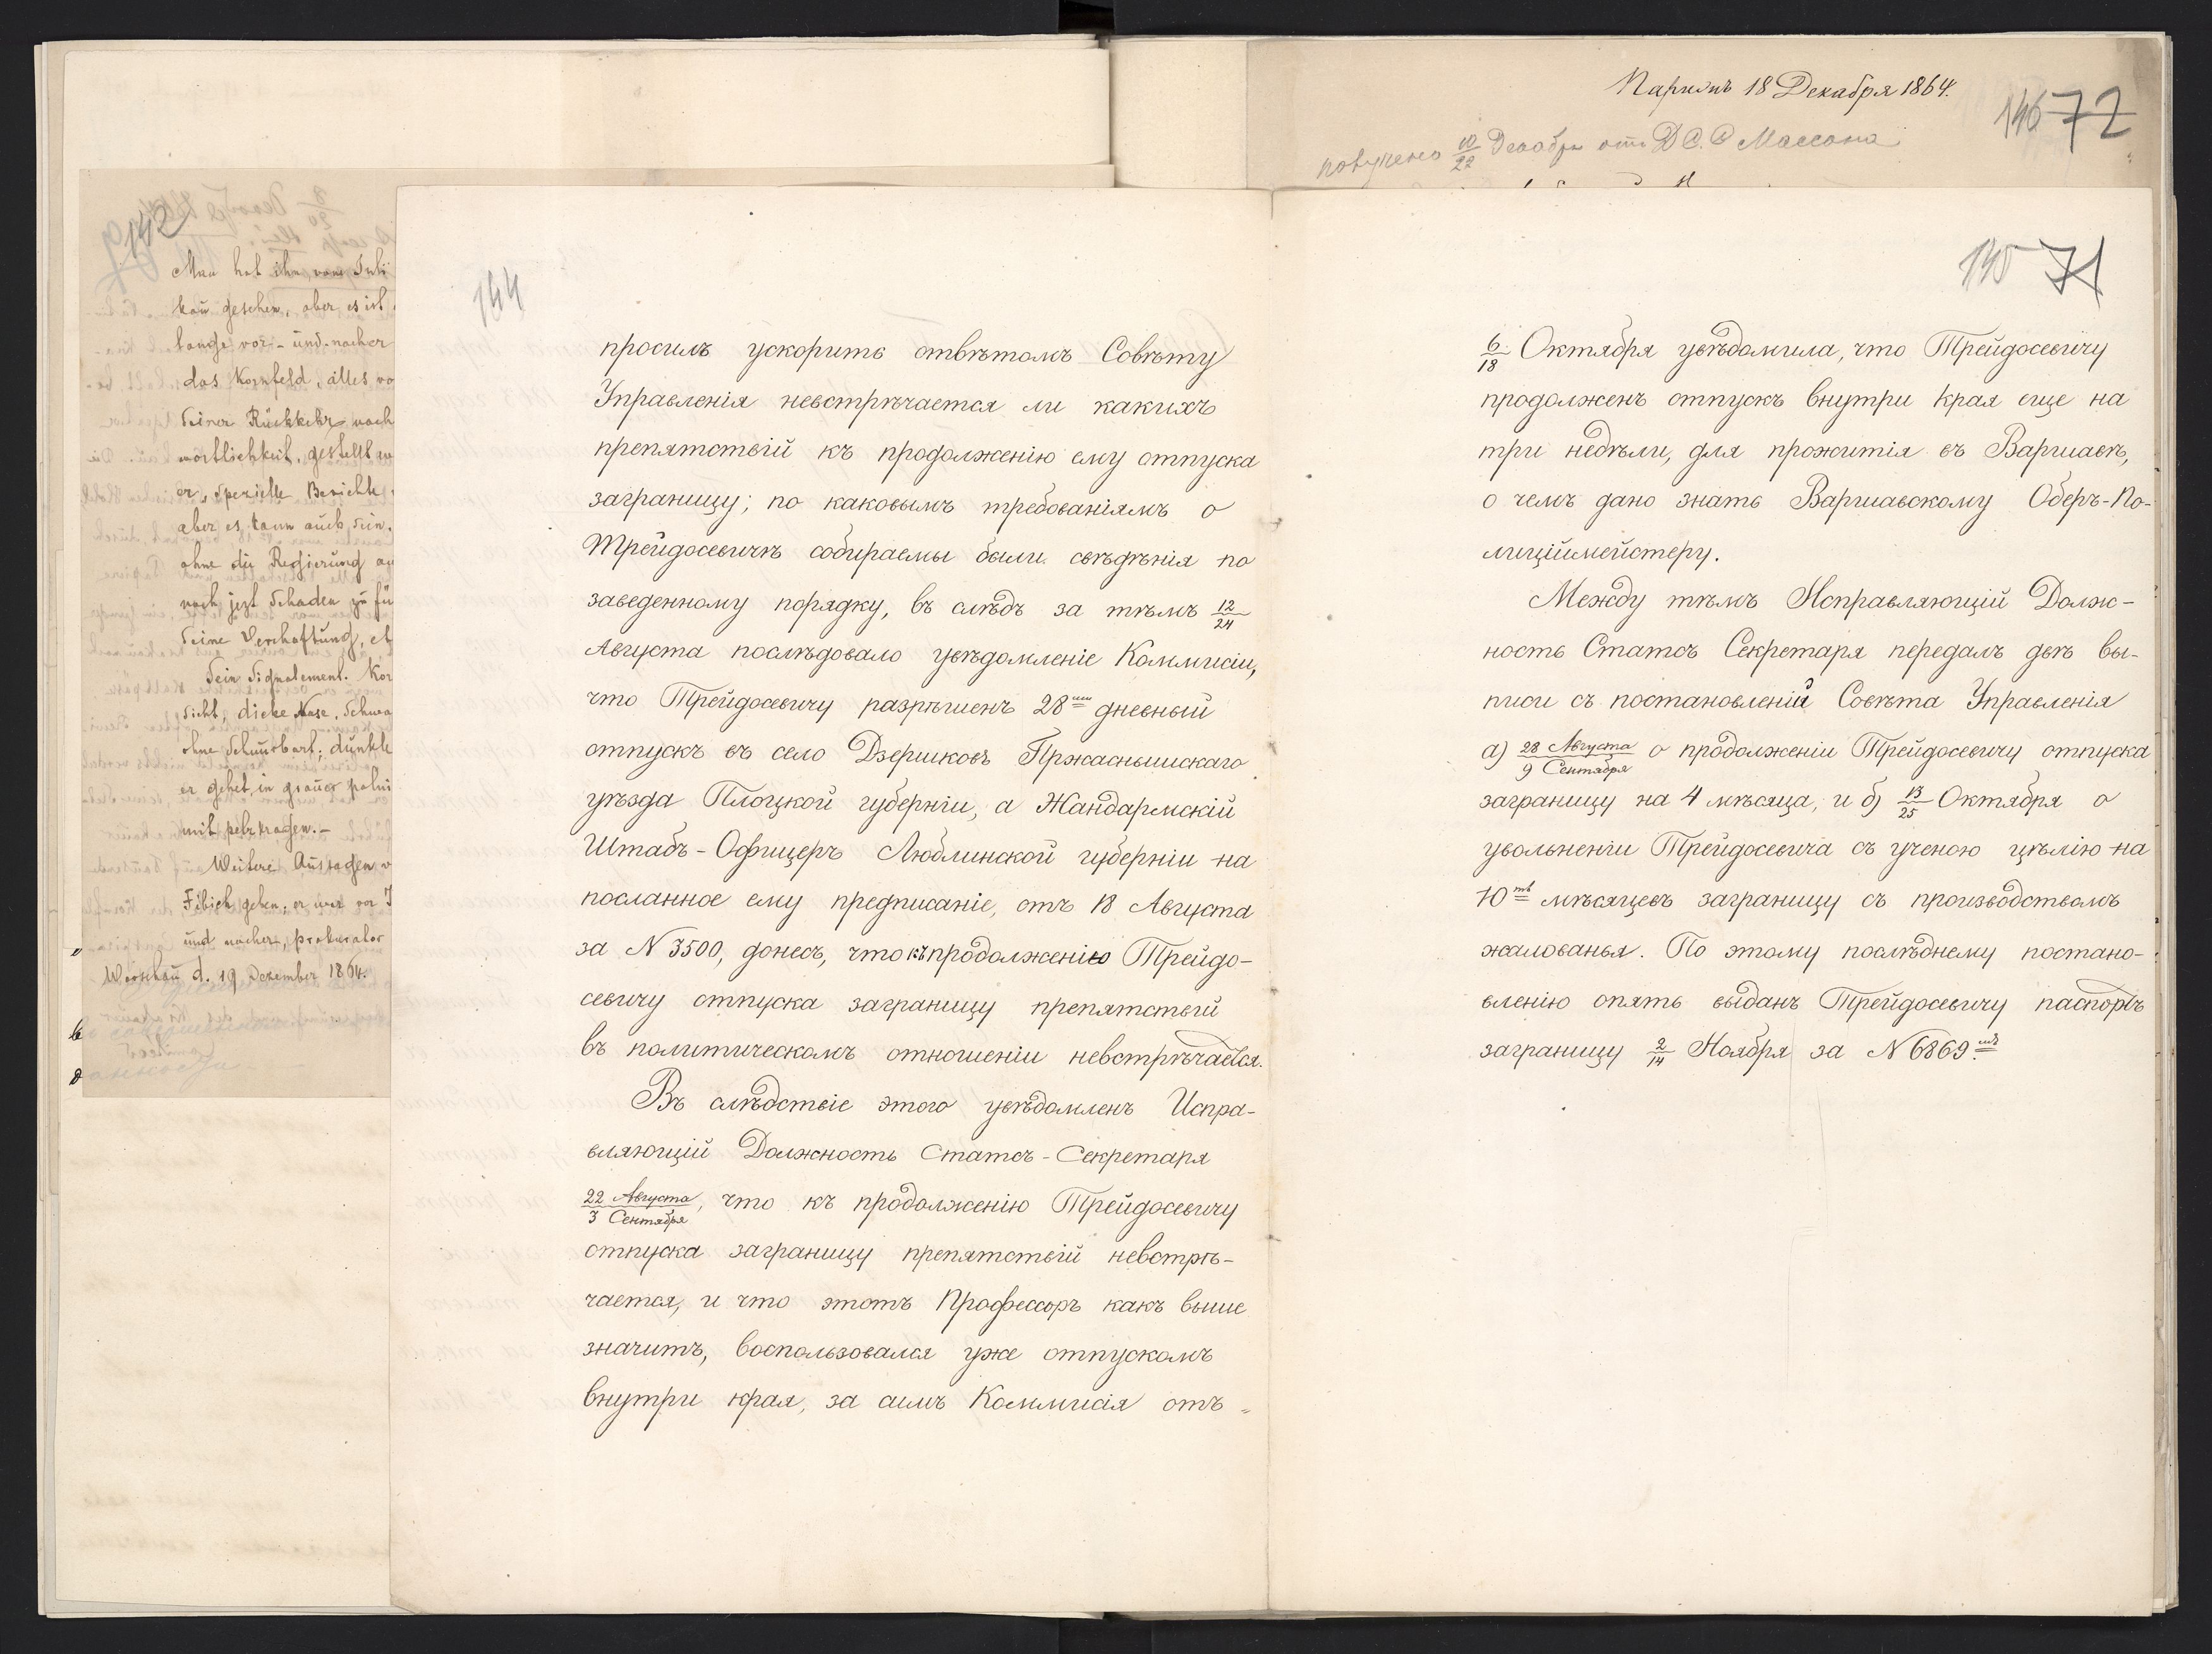 142
Man hat ihn vom Juli
kau gesehen, aber es ist
lange vor- und nacher
das Kornfeld, alles vo
Seiner Rückkehr nach
wörtlichkeit, gestellt
er, spezielle Berichte
aber es kann auch sein,
ohne die Regierung
noch jezt Schaden zu fü
Seine Verhaftung, et
Sein Signalement. Kor
sicht, dicke Nase, Schwa
ohne Schnurbart; dunkle
er gehet in grauer palni
mit pelzkragen.-
Weitere Aussagen
Fibich geben; er war vor
und nacher, prokurator
Warschau d. 19 Dezember 1864.
144
просилъ ускорить отвѣтомъ Совѣту
Управленія невстрѣчается ли какихъ
препятствій къ продолженію ему отпуска
заграницу; по каковымъ требованіямъ о
Трейдосевичѣ собираемы были свѣдѣнія по
заведенному порядку, въ слѣдъ за тѣмъ 12/24
Августа послѣдовало увѣдомленіе Коммисіи,
что Трейдосевичу разрѣшенъ 28ми дневный
отпускъ въ село Дзершковъ Пржаснышскаго
уѣзда Плоцкой губерніи, а Жандармскій
Штабъ-Офицеръ Люблинской губерніи на
посланное ему предписаніе, отъ 18 Августа
за N 3500, донесъ, что къ продолженію Трейдо-
севичу отпуска заграницу препятствій
въ политическомъ отношеніи невстрѣчается.
Въ слѣдствіе этого увѣдомленъ Испра-
вляющій Должность Статсъ-Секретаря
22 Августа/3 Сентября, что къ продолженію Трейдосевичу
отпуска заграницу препятствій невстрѣ-
чается, и что этотъ Профессоръ какъ выше
значитъ, воспользовался уже отпускомъ
внутри края, за симъ Коммисія отъ
Парижъ 18 Декабря 1864.
146 72
получено 10/22 Декабря отъ Д.С.С Массона
145 71
6/18 Октября увѣдомила, что Трейдосевичу
продолженъ отпускъ внутри края еще на
три недѣли, для прожитія въ Варшавѣ,
о чемъ дано знать Варшавскому Оберъ-По-
лиціймейстеру.
Между тѣмъ Исправляющій Долж-
ность Статсъ Секретаря передалъ двѣ вы-
писи съ постановленій Совѣта Управленія
а) 28 Августа/9 Сентября о продолженіи Трейдосевичу отпуска
заграницу на 4 мѣсяца, и б) 13/25 Октября о
увольненіи Трейдосевича съ ученою цѣлію на
10ть мѣсяцевъ заграницу съ производствомъ
жалованья. По этому послѣднему постано-
вленію опять выданъ Трейдосевичу паспортъ
заграницу 2/14 Ноября за N 6869мъ